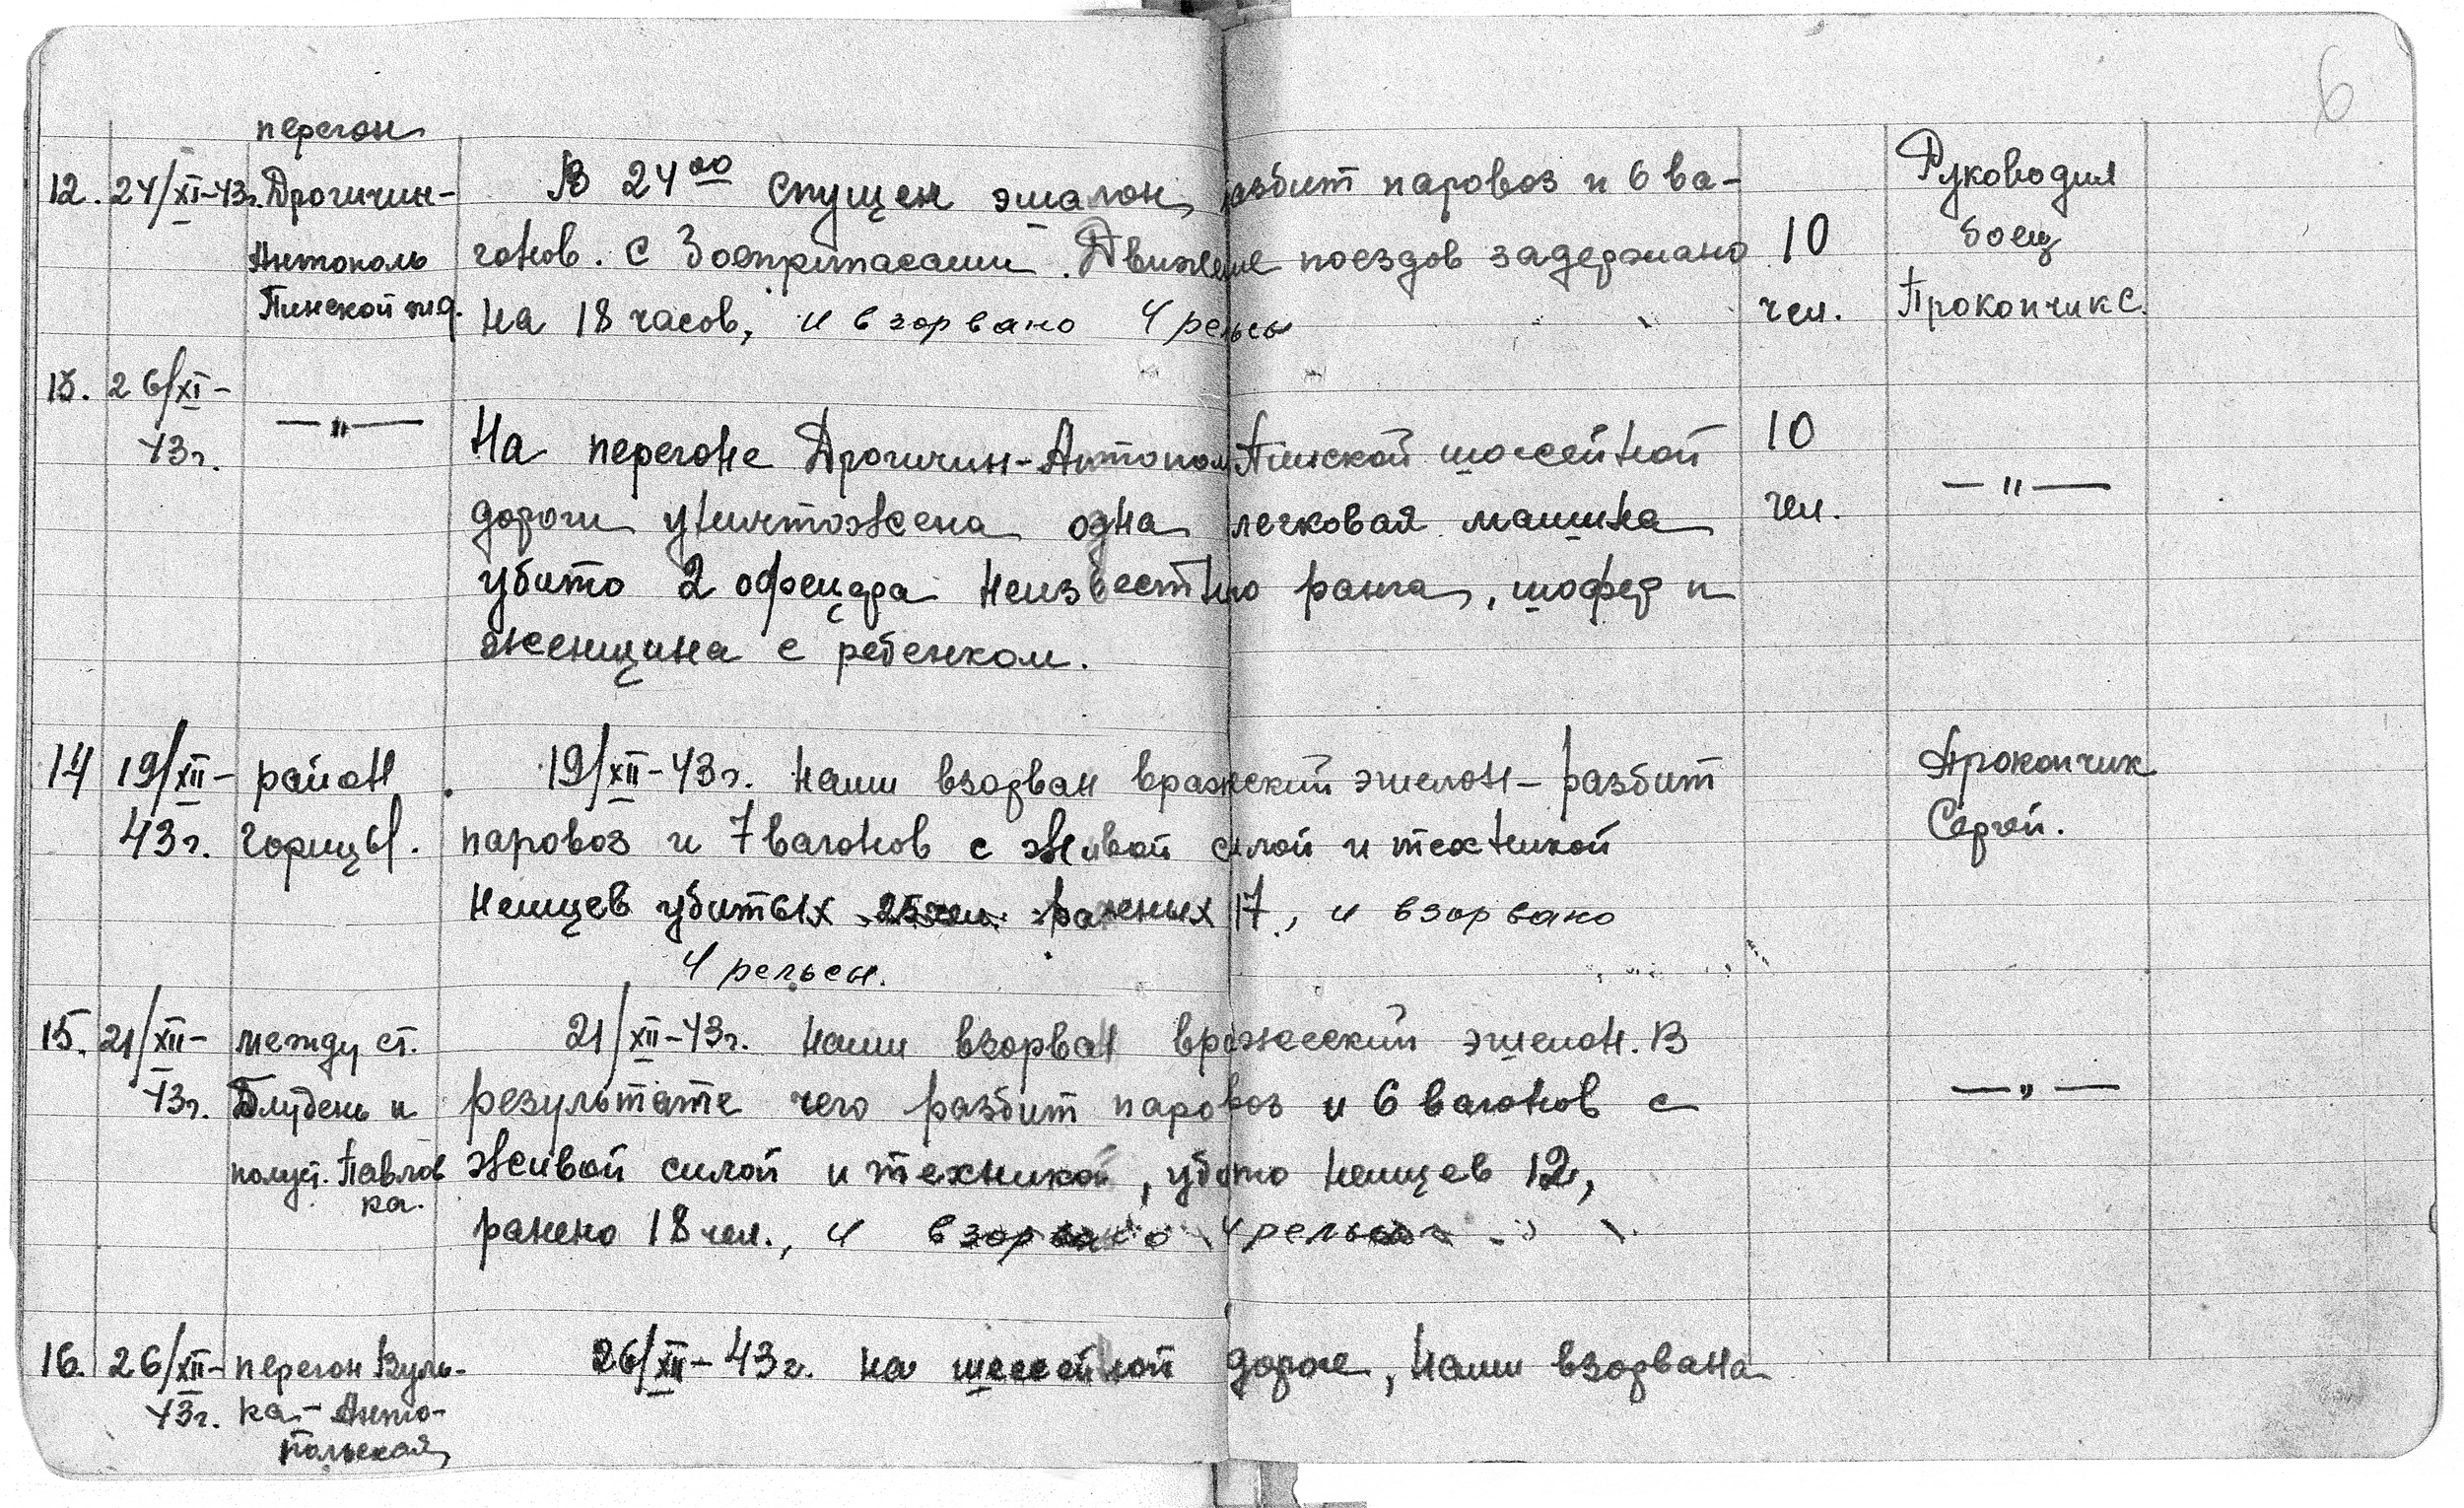 6
перегон
12. 24/XI-43г. Дрогичин- В 24 00 спущен эшалон, разбит паровоз и 6 ва- Руководил
Антополь гонов. с Воеприпасами. Движение поездов задержано 10 боец
Пинской жд. на 18 часов, и взорвано 4 рельсы чел. Прокопчик С.
13. 26/XI-
43г. —"— На перегоне Дрогичин-Антополь Пинской шоссейной 10
дороги уничтожена одна легковая машина чел. —"—
убито 2 офецера неизвестно ранга, шофер и
женщина с ребенком.
14 19/XII- район 19/XII-43г. нами взорван вражеский эшелон - разбит Прокопчик
43г. Горицы. паровоз и 7 вагонов с живой силой и техникой Сергей.
немцев убитых 25 чел. раненых 17., и взорвано
4 рельсы.
15. 21/XII- между ст. 21/XII-43г. нами взорван вражеский эшелон. В
43г. Блудень и результате чего разбит паровоз и 6 вагонов с —"—
полуст. Павлов живой силой и техникой, убито немцев 12,
ка. ранено 18 чел., и взорвано 4 рельсы
16. 26/XII- перегон Вуль- 26/XII-43г. на шоссейной дороге, нами взорвана
43г. ка-Анто-
польская